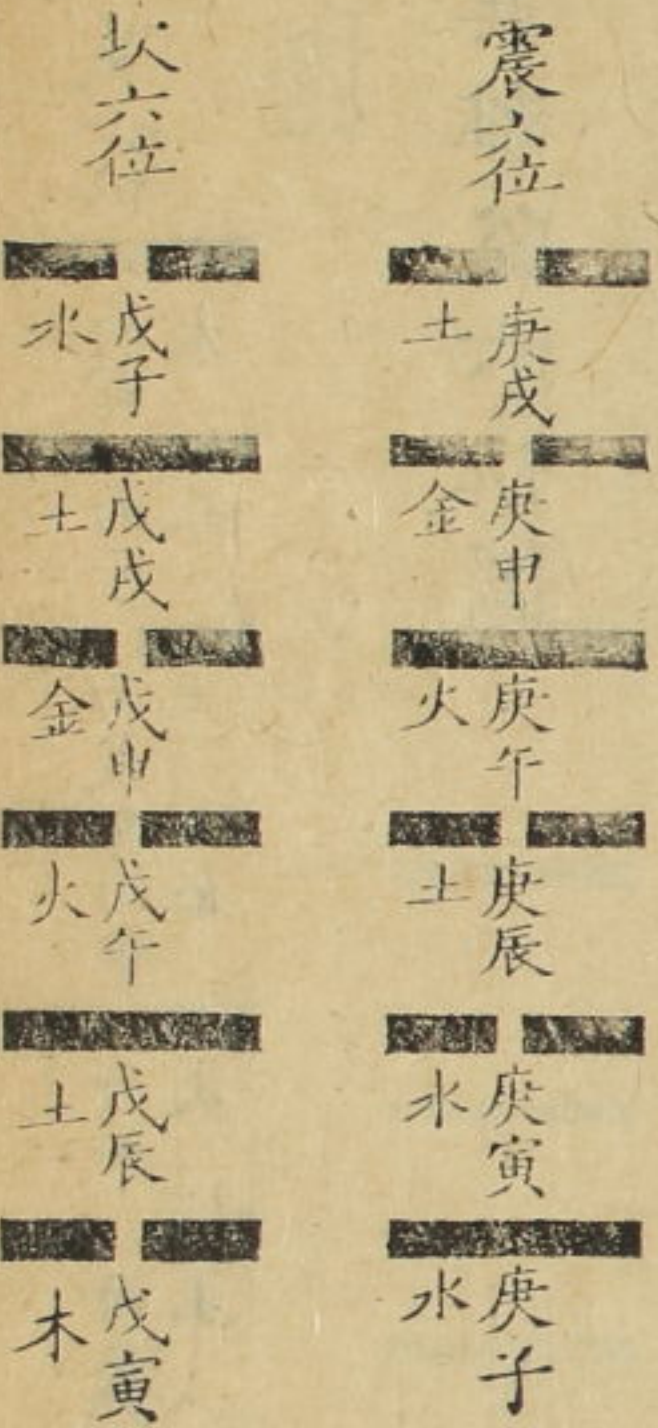 震六位
庚戌
土
庚申
金
庚午
火
庚辰
土
庚寅
水
庚子
水
坎六位
戊子
水
戊戌
土
戊申
金
戊午
火
戊辰
土
戊寅
木